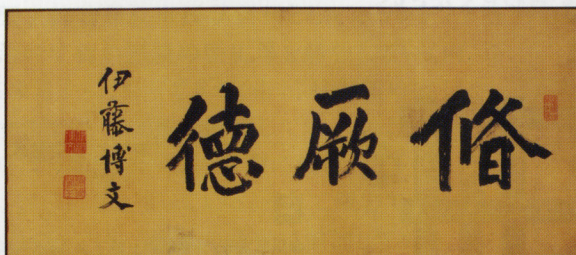 脩厥徳
伊藤博文